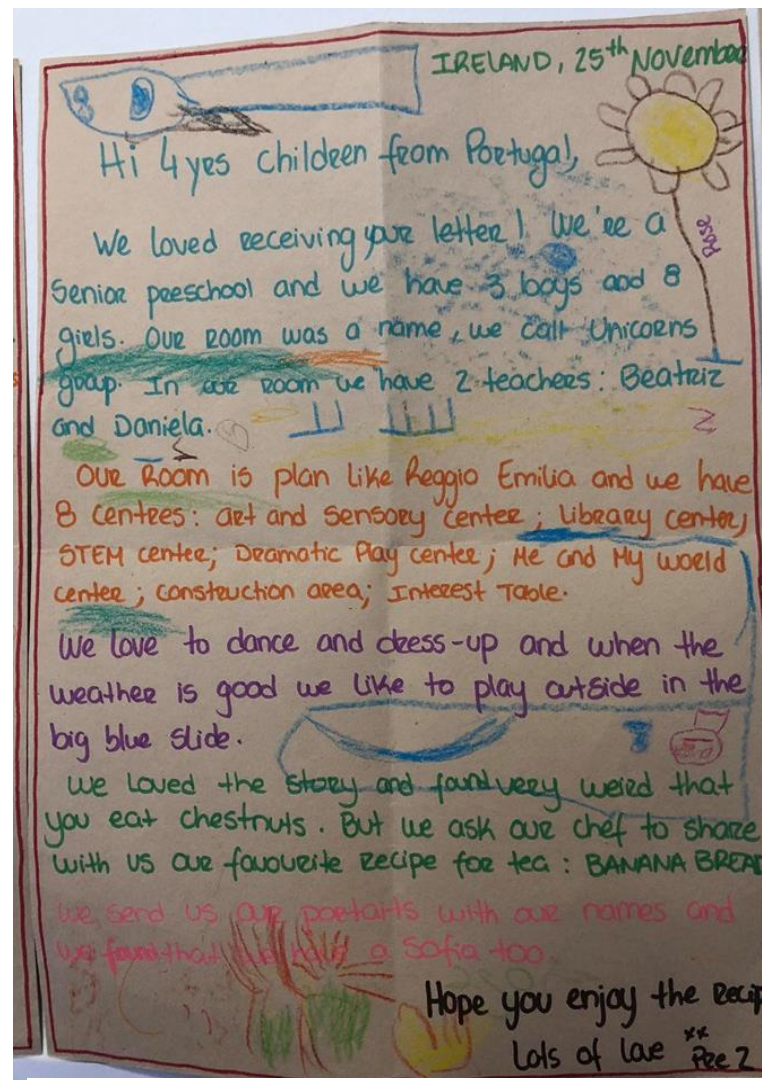 IRELAND, 25th November
Hi 4yrs children from Portugal,
We loved receiving your letter! We're a
Rose
Senior preschool and we have 3 boys and 8
girls. Our room was a name, we call Unicorns
group. In our room we have 2 teachers: Beatriz
and Daniela.
Our Room is plan like Reggio Emilia and we have
8 centres: art and sensory center; Library center;
STEM center; Dramatic Play center; Me and My world
center; construction area; Interest Table.
We love to dance and dress-up and when the
weather is good we like to play outside in the
big blue slide.
We loved the story and found very weird that
you eat chestnuts. But we ask our chef to share
with us our favourite recipe for tea: BANANA BREAD
We send us our portarts with our names and
we found that we have a Sofia too.
Hope you enjoy the recip
Lots of love xx Pre 2